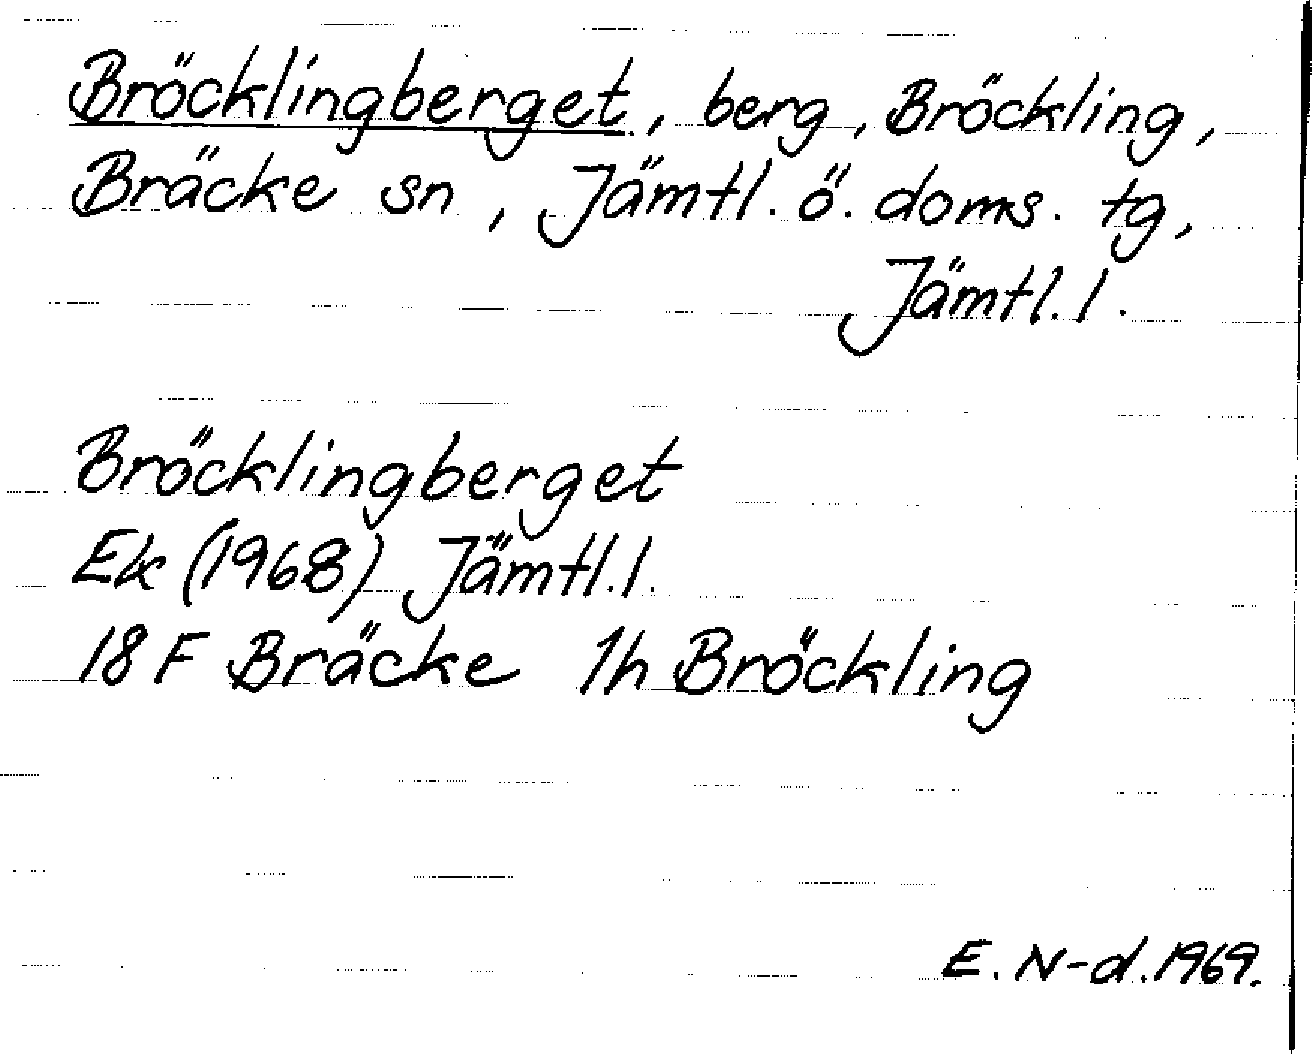 Bröcklingberget, berg, Bröckling,
Bräcke sn, Jämtl. ö. doms. tg,
Jämtl. l.
Bröcklingberget
Ek (1968) Jämtl. l.
18 F Bräcke 1h Bröckling
E. N-d. 1969.